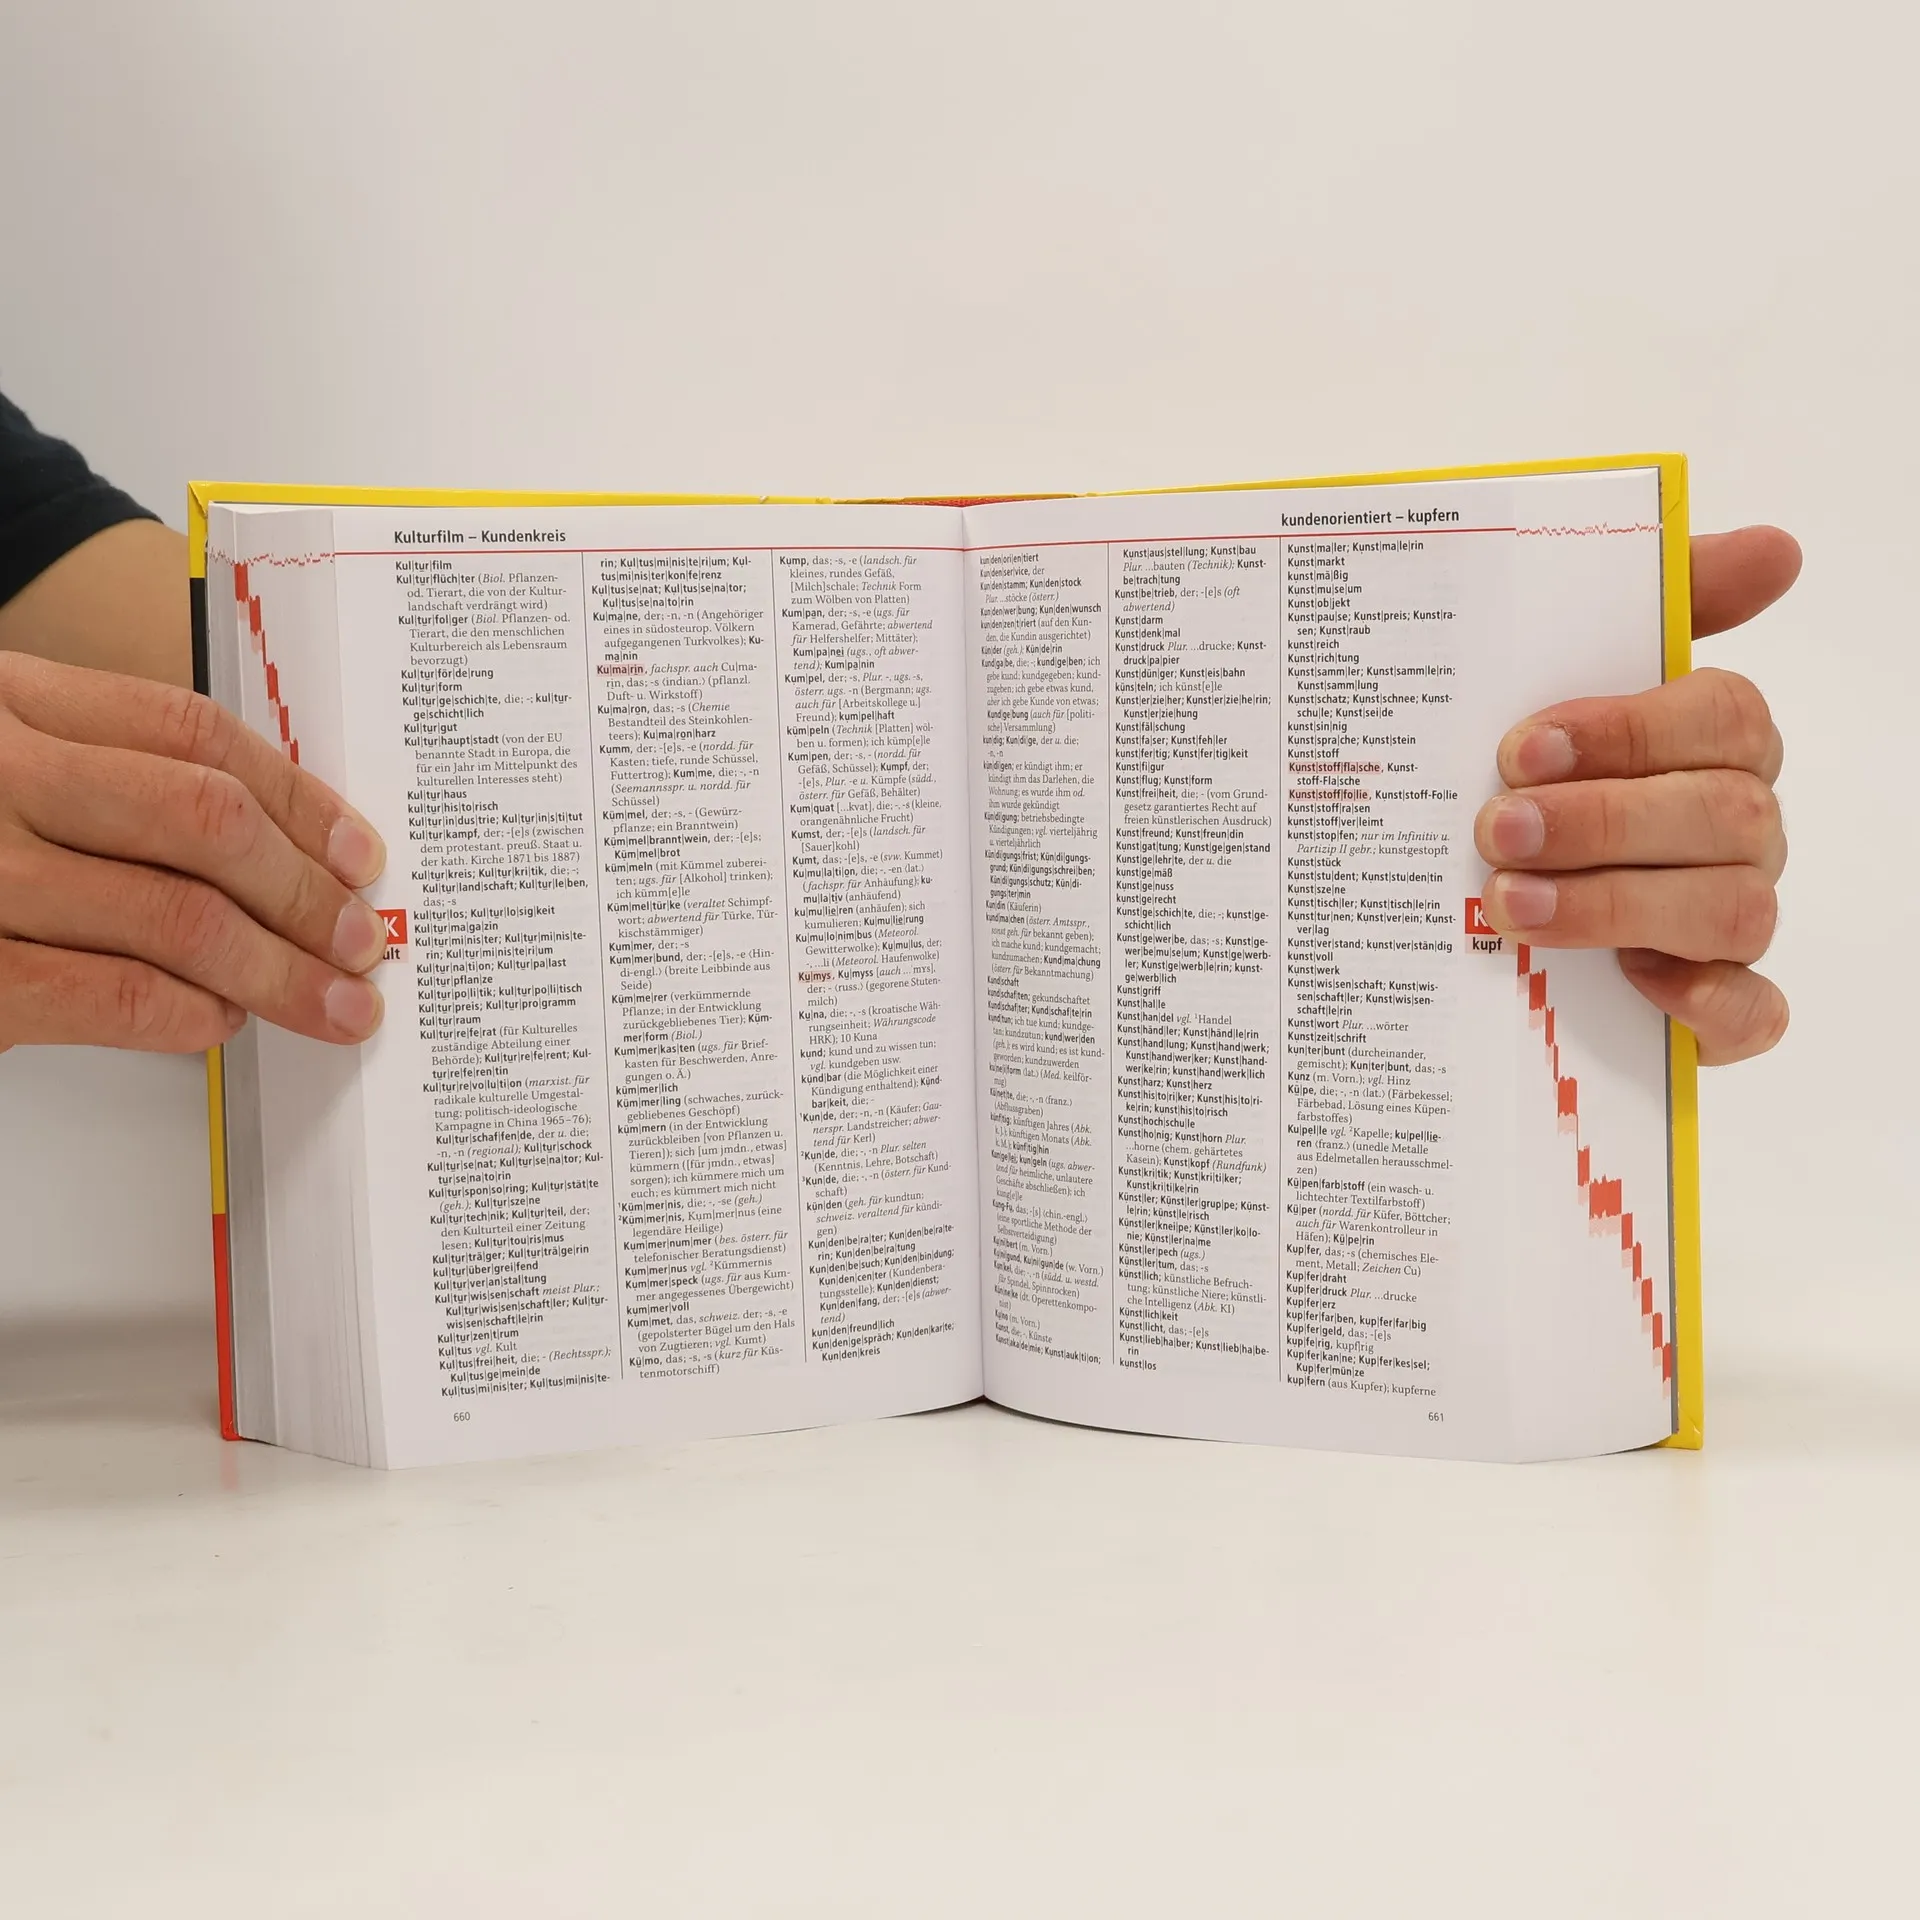 Kulturfilm – Kundenkreis
Kul|tur|film
Kul|tur|flüch|ter (Biol. Pflanzen-
od. Tierart, die von der Kultur-
landschaft verdrängt wird)
Kul|tur|fol|ger (Biol. Pflanzen- od.
Tierart, die den menschlichen
Kulturbereich als Lebensraum
bevorzugt)
Kul|tur|för|de|rung
Kul|tur|form
Kul|tur|ge|schich|te, die; -; kul|tur-
ge|schicht|lich
Kul|tur|gut
Kul|tur|haupt|stadt (von der EU
benannte Stadt in Europa, die
für ein Jahr im Mittelpunkt des
kulturellen Interesses steht)
Kul|tur|haus
kul|tur|his|to|risch
Kul|tur|in|dus|trie; Kul|tur|in|s|ti|tut
Kul|tur|kampf, der; -[e]s (zwischen
dem protestant. preuß. Staat u.
der kath. Kirche 1871 bis 1887)
Kul|tur|kreis; Kul|tur|kri|tik, die; -;
Kul|tur|land|schaft; Kul|tur|le|ben,
das; -s
kul|tur|los; Kul|tur|lo|sig|keit
Kul|tur|ma|ga|zin
Kul|tur|mi|nis|ter; Kul|tur|mi|nis|te-
rin; Kul|tur|mi|nis|te|ri|um
Kul|tur|na|ti|on; Kul|tur|pa|last
Kul|tur|pflan|ze
Kul|tur|po|li|tik; kul|tur|po|li|tisch
Kul|tur|preis; Kul|tur|pro|gramm
Kul|tur|raum
Kul|tur|re|fe|rat (für Kulturelles
zuständige Abteilung einer
Behörde); Kul|tur|re|fe|rent; Kul-
tur|re|fe|ren|tin
Kul|tur|re|vo|lu|ti|on (marxist. für
radikale kulturelle Umgestal-
tung; politisch-ideologische
Kampagne in China 1965–76);
Kul|tur|schaf|fen|de, der u. die;
-n, -n (regional); Kul|tur|schock
Kul|tur|se|nat; Kul|tur|se|na|tor; Kul-
tur|se|na|to|rin
Kul|tur|spon|so|ring; Kul|tur|stät|te
(geh.); Kul|tur|sze|ne
Kul|tur|tech|nik; Kul|tur|teil, der;
den Kulturteil einer Zeitung
lesen; Kul|tur|tou|ris|mus
Kul|tur|trä|ger; Kul|tur|trä|ge|rin
kul|tur|über|grei|fend
Kul|tur|ver|an|stal|tung
Kul|tur|wis|sen|schaft meist Plur.;
Kul|tur|wis|sen|schaft|ler; Kul|tur-
wis|sen|schaft|le|rin
Kul|tur|zen|t|rum
Kul|tus vgl. Kult
Kul|tus|frei|heit, die; - (Rechtsspr.);
Kul|tus|ge|mein|de
Kul|tus|mi|nis|ter; Kul|tus|mi|nis|te-
rin; Kul|tus|mi|nis|te|ri|um; Kul-
tus|mi|nis|ter|kon|fe|renz
Kul|tus|se|nat; Kul|tus|se|na|tor;
Kul|tus|se|na|to|rin
Ku|ma|ne, der; -n, -n (Angehöriger
eines in südosteurop. Völkern
aufgegangenen Turkvolkes); Ku-
ma|nin
Ku|ma|rin, fachspr. auch Cu|ma-
rin, das; -s ⟨indian.⟩ (pflanzl.
Duft- u. Wirkstoff)
Ku|ma|ron, das; -s (Chemie
Bestandteil des Steinkohlen-
teers); Ku|ma|ron|harz
Kumm, der; -[e]s, -e (nordd. für
Kasten; tiefe, runde Schüssel,
Futtertrog); Kum|me, die; -, -n
(Seemannsspr. u. nordd. für
Schüssel)
Küm|mel, der; -s, - (Gewürz-
pflanze; ein Branntwein)
Küm|mel|brannt|wein, der; -[e]s;
Küm|mel|brot
küm|meln (mit Kümmel zuberei-
ten; ugs. für [Alkohol] trinken);
ich kümm[e]le
Küm|mel|tür|ke (veraltet Schimpf-
wort; abwertend für Türke, Tür-
kischstämmiger)
Kum|mer, der; -s
Kum|mer|bund, der; -[e]s, -e ⟨Hin-
di-engl.⟩ (breite Leibbinde aus
Seide)
Küm|me|rer (verkümmernde
Pflanze; in der Entwicklung
zurückgebliebenes Tier); Küm-
mer|form (Biol.)
Kum|mer|kas|ten (ugs. für Brief-
kasten für Beschwerden, Anre-
gungen o. Ä.)
küm|mer|lich
Küm|mer|ling (schwaches, zurück-
gebliebenes Geschöpf)
küm|mern (in der Entwicklung
zurückbleiben [von Pflanzen u.
Tieren]); sich [um jmdn., etwas]
kümmern ([für jmdn., etwas]
sorgen); ich kümmere mich um
euch; es kümmert mich nicht
¹Küm|mer|nis, die; -, -se (geh.)
²Küm|mer|nis, Kum|mer|nus (eine
legendäre Heilige)
Kum|mer|num|mer (bes. österr. für
telefonischer Beratungsdienst)
Kum|mer|nus vgl. ²Kümmernis
Kum|mer|speck (ugs. für aus Kum-
mer angegessenes Übergewicht)
kum|mer|voll
Kum|met, das, schweiz. der; -s, -e
(gepolsterter Bügel um den Hals
von Zugtieren; vgl. Kumt)
Kü|mo, das; -s, -s (kurz für Küs-
tenmotorschiff)
Kump, das; -s, -e (landsch. für
kleines, rundes Gefäß,
[Milch]schale; Technik Form
zum Wölben von Platten)
Kum|pan, der; -s, -e (ugs. für
Kamerad, Gefährte; abwertend
für Helfershelfer; Mittäter);
Kum|pa|nei (ugs., oft abwer-
tend); Kum|pa|nin
Kum|pel, der; -s, Plur. -, ugs. -s,
österr. ugs. -n (Bergmann; ugs.
auch für [Arbeitskollege u.]
Freund); kum|pel|haft
küm|peln (Technik [Platten] wöl-
ben u. formen); ich kümp[e]le
Kum|pen, der; -s, - (nordd. für
Gefäß, Schüssel); Kumpf, der;
-[e]s, Plur. -e u. Kümpfe (südd.,
österr. für Gefäß, Behälter)
Kum|quat [...kvat], die; -, -s (kleine,
orangenähnliche Frucht)
Kumst, der; -[e]s (landsch. für
[Sauer]kohl)
Kumt, das; -[e]s, -e (svw. Kummet)
Ku|mu|la|ti|on, die; -, -en ⟨lat.⟩
(fachspr. für Anhäufung); ku-
mu|la|tiv (anhäufend)
ku|mu|lie|ren (anhäufen); sich
kumulieren; Ku|mu|lie|rung
Ku|mu|lo|nim|bus (Meteorol.
Gewitterwolke); Ku|mu|lus, der;
-, ...li (Meteorol. Haufenwolke)
Ku|mys, Ku|myss [auch ... mʏs],
der; - ⟨russ.⟩ (gegorene Stuten-
milch)
Ku|na, die; -, -s (kroatische Wäh-
rungseinheit; Währungscode
HRK); 10 Kuna
kund; kund und zu wissen tun;
vgl. kundgeben usw.
künd|bar (die Möglichkeit einer
Kündigung enthaltend); Künd-
bar|keit, die; -
¹Kun|de, der; -n, -n (Käufer; Gau-
nerspr. Landstreicher; abwer-
tend für Kerl)
²Kun|de, die; -, -n Plur. selten
(Kenntnis, Lehre, Botschaft)
³Kun|de, die; -, -n (österr. für Kund-
schaft)
kün|den (geh. für kundtun;
schweiz. veraltend für kündi-
gen)
Kun|den|be|ra|ter; Kun|den|be|ra|te-
rin; Kun|den|be|ra|tung
Kun|den|be|such; Kun|den|bin|dung;
Kun|den|cen|ter (Kundenbera-
tungsstelle); Kun|den|dienst;
Kun|den|fang, der; -[e]s (abwer-
tend)
kun|den|freund|lich
Kun|den|ge|spräch; Kun|den|kar|te;
Kun|den|kreis
K
ult
660
kundenorientiert – kupfern
kun|den|ori|en|tiert
Kun|den|ser|vice, der
Kun|den|stamm; Kun|den|stock
Plur. ...stöcke (österr.)
Kun|den|wer|bung; Kun|den|wunsch
kun|den|zen|t|riert (auf den Kun-
den, die Kundin ausgerichtet)
Kün|der (geh.); Kün|de|rin
Kund|ga|be, die; -; kund|ge|ben; ich
gebe kund; kundgegeben; kund-
zugeben; ich gebe etwas kund,
aber ich gebe Kunde von etwas;
Kund|ge|bung (auch für [politi-
sche] Versammlung)
kun|dig; Kun|di|ge, der u. die;
-n, -n
kün|di|gen; er kündigt ihm; er
kündigt ihm das Darlehen, die
Wohnung; es wurde ihm od.
ihm wurde gekündigt
Kün|di|gung; betriebsbedingte
Kündigungen; vgl. vierteljährig
u. vierteljährlich
Kün|di|gungs|frist; Kün|di|gungs-
grund; Kün|di|gungs|schrei|ben;
Kün|di|gungs|schutz; Kün|di-
gungs|ter|min
Kun|din (Käuferin)
kund|ma|chen (österr. Amtsspr.,
sonst geh. für bekannt geben);
ich mache kund; kundgemacht;
kundzumachen; Kund|ma|chung
(österr. für Bekanntmachung)
Kund|schaft
kund|schaf|ten; gekundschaftet
Kund|schaf|ter; Kund|schaf|te|rin
kund|tun; ich tue kund; kundge-
tan; kundzutun; kund|wer|den
(geh.); es wird kund; es ist kund-
geworden; kundzuwerden
ku|ne|i|form ⟨lat.⟩ (Med. keilför-
mig)
Kü|net|te, die; -, -n ⟨franz.⟩
(Abflussgraben)
künf|tig; künftigen Jahres (Abk.
k. J.); künftigen Monats (Abk.
k. M.); künf|tig|hin
Kun|ge|lei; kun|geln (ugs. abwer-
tend für heimliche, unlautere
Geschäfte abschließen); ich
kung[e]le
Kung-Fu, das; -[s] ⟨chin.-engl.⟩
(eine sportliche Methode der
Selbstverteidigung)
Ku|ni|bert (m. Vorn.)
Ku|ni|gund, Ku|ni|gun|de (w. Vorn.)
Kun|kel, die; -, -n (südd. u. westd.
für Spindel, Spinnrocken)
Kün|ne|ke (dt. Operettenkompo-
nist)
Ku|no (m. Vorn.)
Kunst, die; -, Künste
Kunst|aka|de|mie; Kunst|auk|ti|on;
Kunst|aus|stel|lung; Kunst|bau
Plur. ...bauten (Technik); Kunst-
be|trach|tung
Kunst|be|trieb, der; -[e]s (oft
abwertend)
Kunst|darm
Kunst|denk|mal
Kunst|druck Plur. ...drucke; Kunst-
druck|pa|pier
Kunst|dün|ger; Kunst|eis|bahn
küns|teln; ich künst[e]le
Kunst|er|zie|her; Kunst|er|zie|he|rin;
Kunst|er|zie|hung
Kunst|fäl|schung
Kunst|fa|ser; Kunst|feh|ler
kunst|fer|tig; Kunst|fer|tig|keit
Kunst|fi|gur
Kunst|flug; Kunst|form
Kunst|frei|heit, die; - (vom Grund-
gesetz garantiertes Recht auf
freien künstlerischen Ausdruck)
Kunst|freund; Kunst|freun|din
Kunst|gat|tung; Kunst|ge|gen|stand
Kunst|ge|lehr|te, der u. die
kunst|ge|mäß
Kunst|ge|nuss
kunst|ge|recht
Kunst|ge|schich|te, die; -; kunst|ge-
schicht|lich
Kunst|ge|wer|be, das; -s; Kunst|ge-
wer|be|mu|se|um; Kunst|ge|werb-
ler; Kunst|ge|werb|le|rin; kunst-
ge|werb|lich
Kunst|griff
Kunst|hal|le
Kunst|han|del vgl. ¹Handel
Kunst|händ|ler; Kunst|händ|le|rin
Kunst|hand|lung; Kunst|hand|werk;
Kunst|hand|wer|ker; Kunst|hand-
wer|ke|rin; kunst|hand|werk|lich
Kunst|harz; Kunst|herz
Kunst|his|to|ri|ker; Kunst|his|to|ri-
ke|rin; kunst|his|to|risch
Kunst|hoch|schu|le
Kunst|ho|nig; Kunst|horn Plur.
...horne (chem. gehärtetes
Kasein); Kunst|kopf (Rundfunk)
Kunst|kri|tik; Kunst|kri|ti|ker;
Kunst|kri|ti|ke|rin
Künst|ler; Künst|ler|grup|pe; Künst-
le|rin; künst|le|risch
Künst|ler|knei|pe; Künst|ler|ko|lo-
nie; Künst|ler|na|me
Künst|ler|pech (ugs.)
Künst|ler|tum, das; -s
künst|lich; künstliche Befruch-
tung; künstliche Niere; künstli-
che Intelligenz (Abk. KI)
Künst|lich|keit
Kunst|licht, das; -[e]s
Kunst|lieb|ha|ber; Kunst|lieb|ha|be-
rin
kunst|los
Kunst|ma|ler; Kunst|ma|le|rin
Kunst|markt
kunst|mä|ßig
Kunst|mu|se|um
Kunst|ob|jekt
Kunst|pau|se; Kunst|preis; Kunst|ra-
sen; Kunst|raub
kunst|reich
Kunst|rich|tung
Kunst|samm|ler; Kunst|samm|le|rin;
Kunst|samm|lung
Kunst|schatz; Kunst|schnee; Kunst-
schu|le; Kunst|sei|de
kunst|sin|nig
Kunst|spra|che; Kunst|stein
Kunst|stoff
Kunst|stoff|fla|sche, Kunst-
stoff-Fla|sche
Kunst|stoff|fo|lie, Kunst|stoff-Fo|lie
Kunst|stoff|ra|sen
kunst|stoff|ver|leimt
kunst|stop|fen; nur im Infinitiv u.
Partizip II gebr.; kunstgestopft
Kunst|stück
Kunst|stu|dent; Kunst|stu|den|tin
Kunst|sze|ne
Kunst|tisch|ler; Kunst|tisch|le|rin
Kunst|tur|nen; Kunst|ver|ein; Kunst-
ver|lag
Kunst|ver|stand; kunst|ver|stän|dig
kunst|voll
Kunst|werk
Kunst|wis|sen|schaft; Kunst|wis-
sen|schaft|ler; Kunst|wis|sen-
schaft|le|rin
Kunst|wort Plur. ...wörter
Kunst|zeit|schrift
kun|ter|bunt (durcheinander,
gemischt); Kun|ter|bunt, das; -s
Kunz (m. Vorn.); vgl. Hinz
Kü|pe, die; -, -n ⟨lat.⟩ (Färbekessel;
Färbebad, Lösung eines Küpen-
farbstoffes)
Ku|pel|le vgl. ²Kapelle; ku|pel|lie-
ren ⟨franz.⟩ (unedle Metalle
aus Edelmetallen herausschmel-
zen)
Kü|pen|farb|stoff (ein wasch- u.
lichtechter Textilfarbstoff)
Kü|per (nordd. für Küfer, Böttcher;
auch für Warenkontrolleur in
Häfen); Kü|pe|rin
Kup|fer, das; -s (chemisches Ele-
ment, Metall; Zeichen Cu)
Kup|fer|draht
Kup|fer|druck Plur. ...drucke
Kup|fer|erz
kup|fer|far|ben, kup|fer|far|big
Kup|fer|geld, das; -[e]s
kup|fe|rig, kupf|rig
Kup|fer|kan|ne; Kup|fer|kes|sel;
Kup|fer|mün|ze
kup|fern (aus Kupfer); kupferne
K
kupf
661